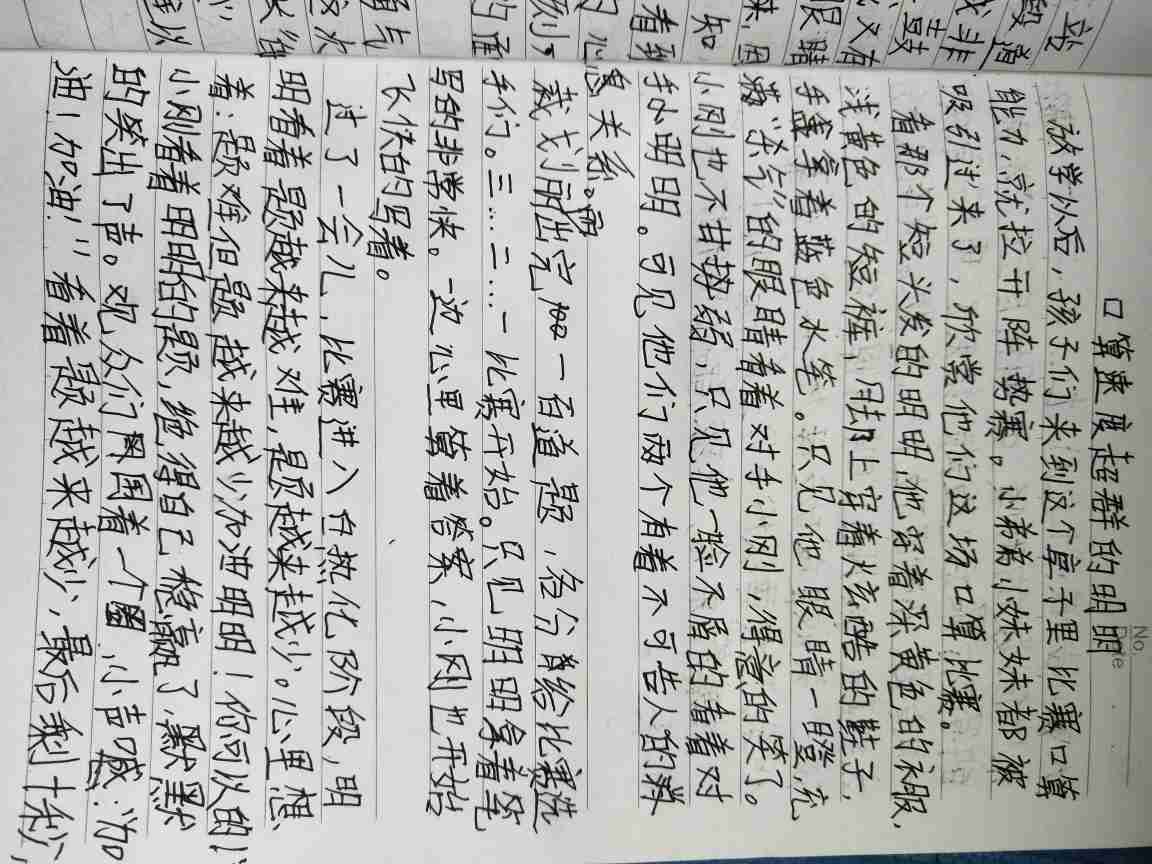 No.
口算速度超群的明明
放学以后，孩子们来到这个亭子里比赛口算
能力，就拉开阵势赛。小弟弟小妹妹都被
吸引过来了，欣赏他们这场口算比赛。
看那个短头发的明明，他穿着深黄色的衣服，
浅黄色的短裤，脚上穿着炫酷的鞋子，
手拿着蓝色水笔。只见他眼睛一瞪，充
满“杀气”的眼睛看着对手小刚，得意的笑了。
小刚也不甘势弱，只见他一脸不屑的看着对
手小明明。可见他们两个有着不可告人的
关系。
裁划出完一百道题，分给比赛选
手们。三…二…一比赛开始。只见明明拿着笔
写的非常快。一边心里算着答案，小刚也开始
飞快的写着。
过了一会儿，比赛进入白热化阶段，明
明看着题越来越难，题越来越少。心里想
着：题难但题越来越少加油明明！你可以的！”
小刚看着明明的题，绝得自己稳赢了，默默
的笑出了声。观众们围着一个圈，小声喊：“加
油！加油！”看着题越来越少，最后剩十秒，